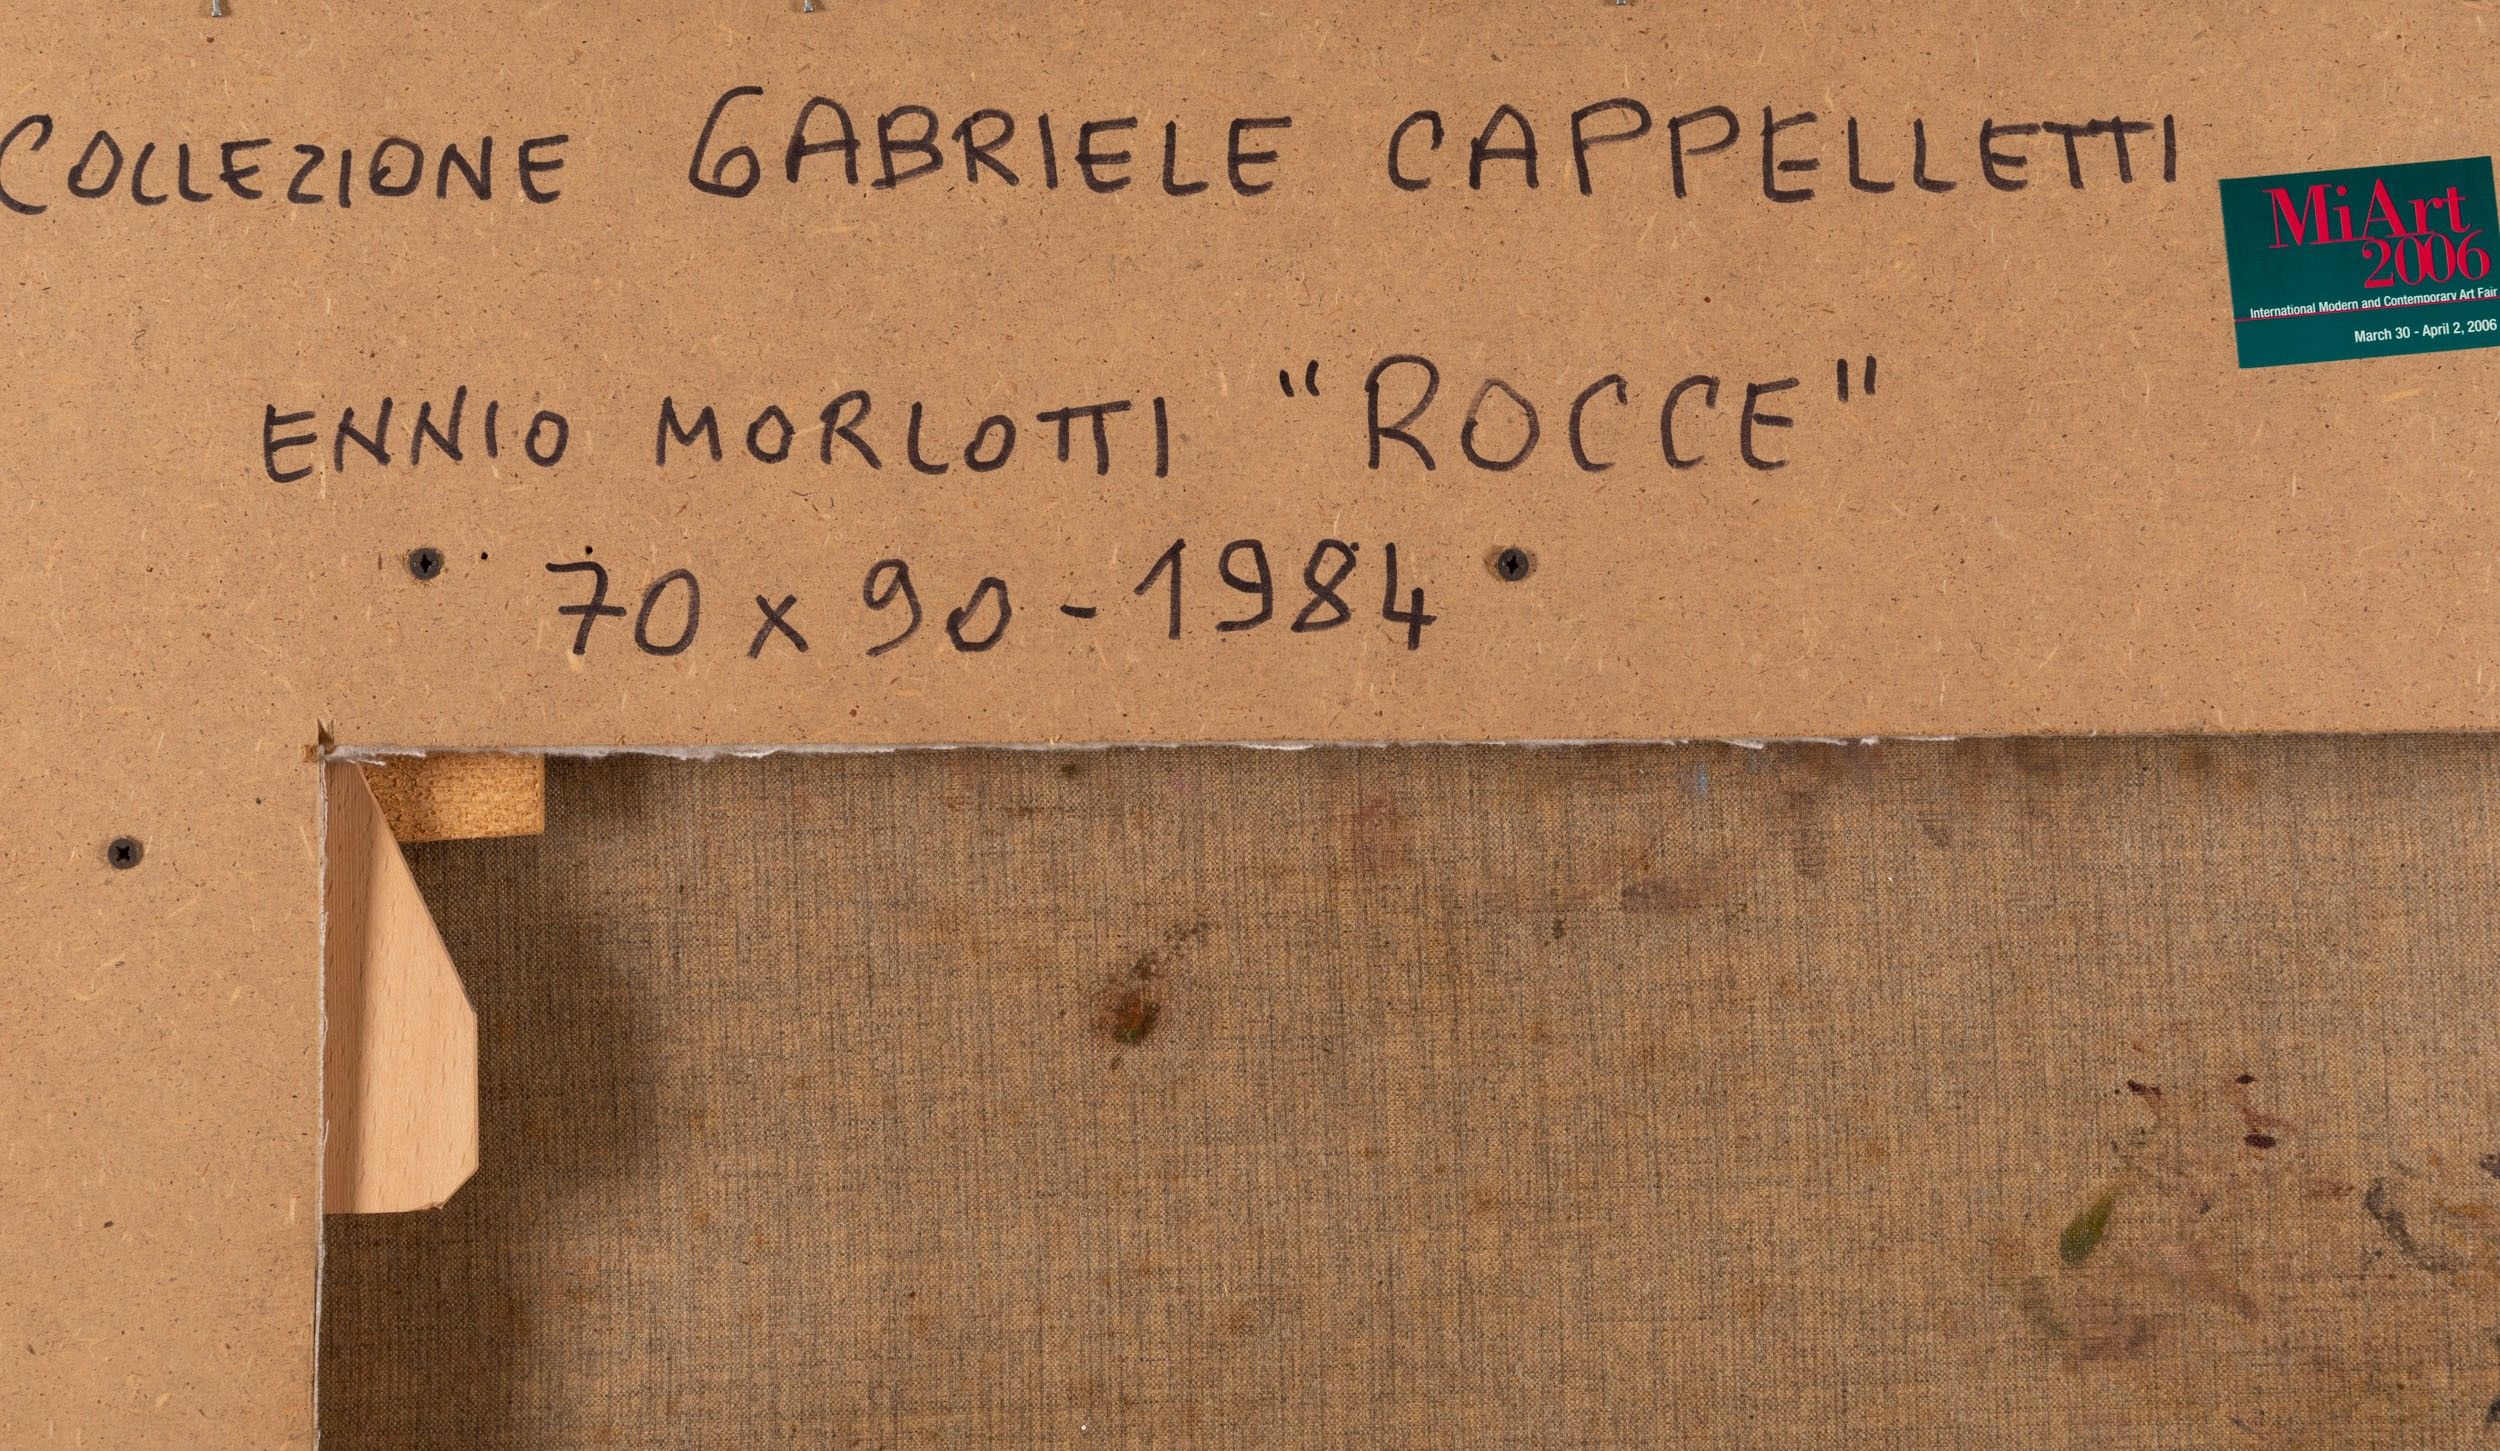 COLLEZIONE GABRIELE CAPPELLETTI
MiArt
2006
International Modern and Contemporary Art Fair
March 30 - April 2, 2006
ENNIO MORLOTTI "ROCCE"
70 x 90 - 1984